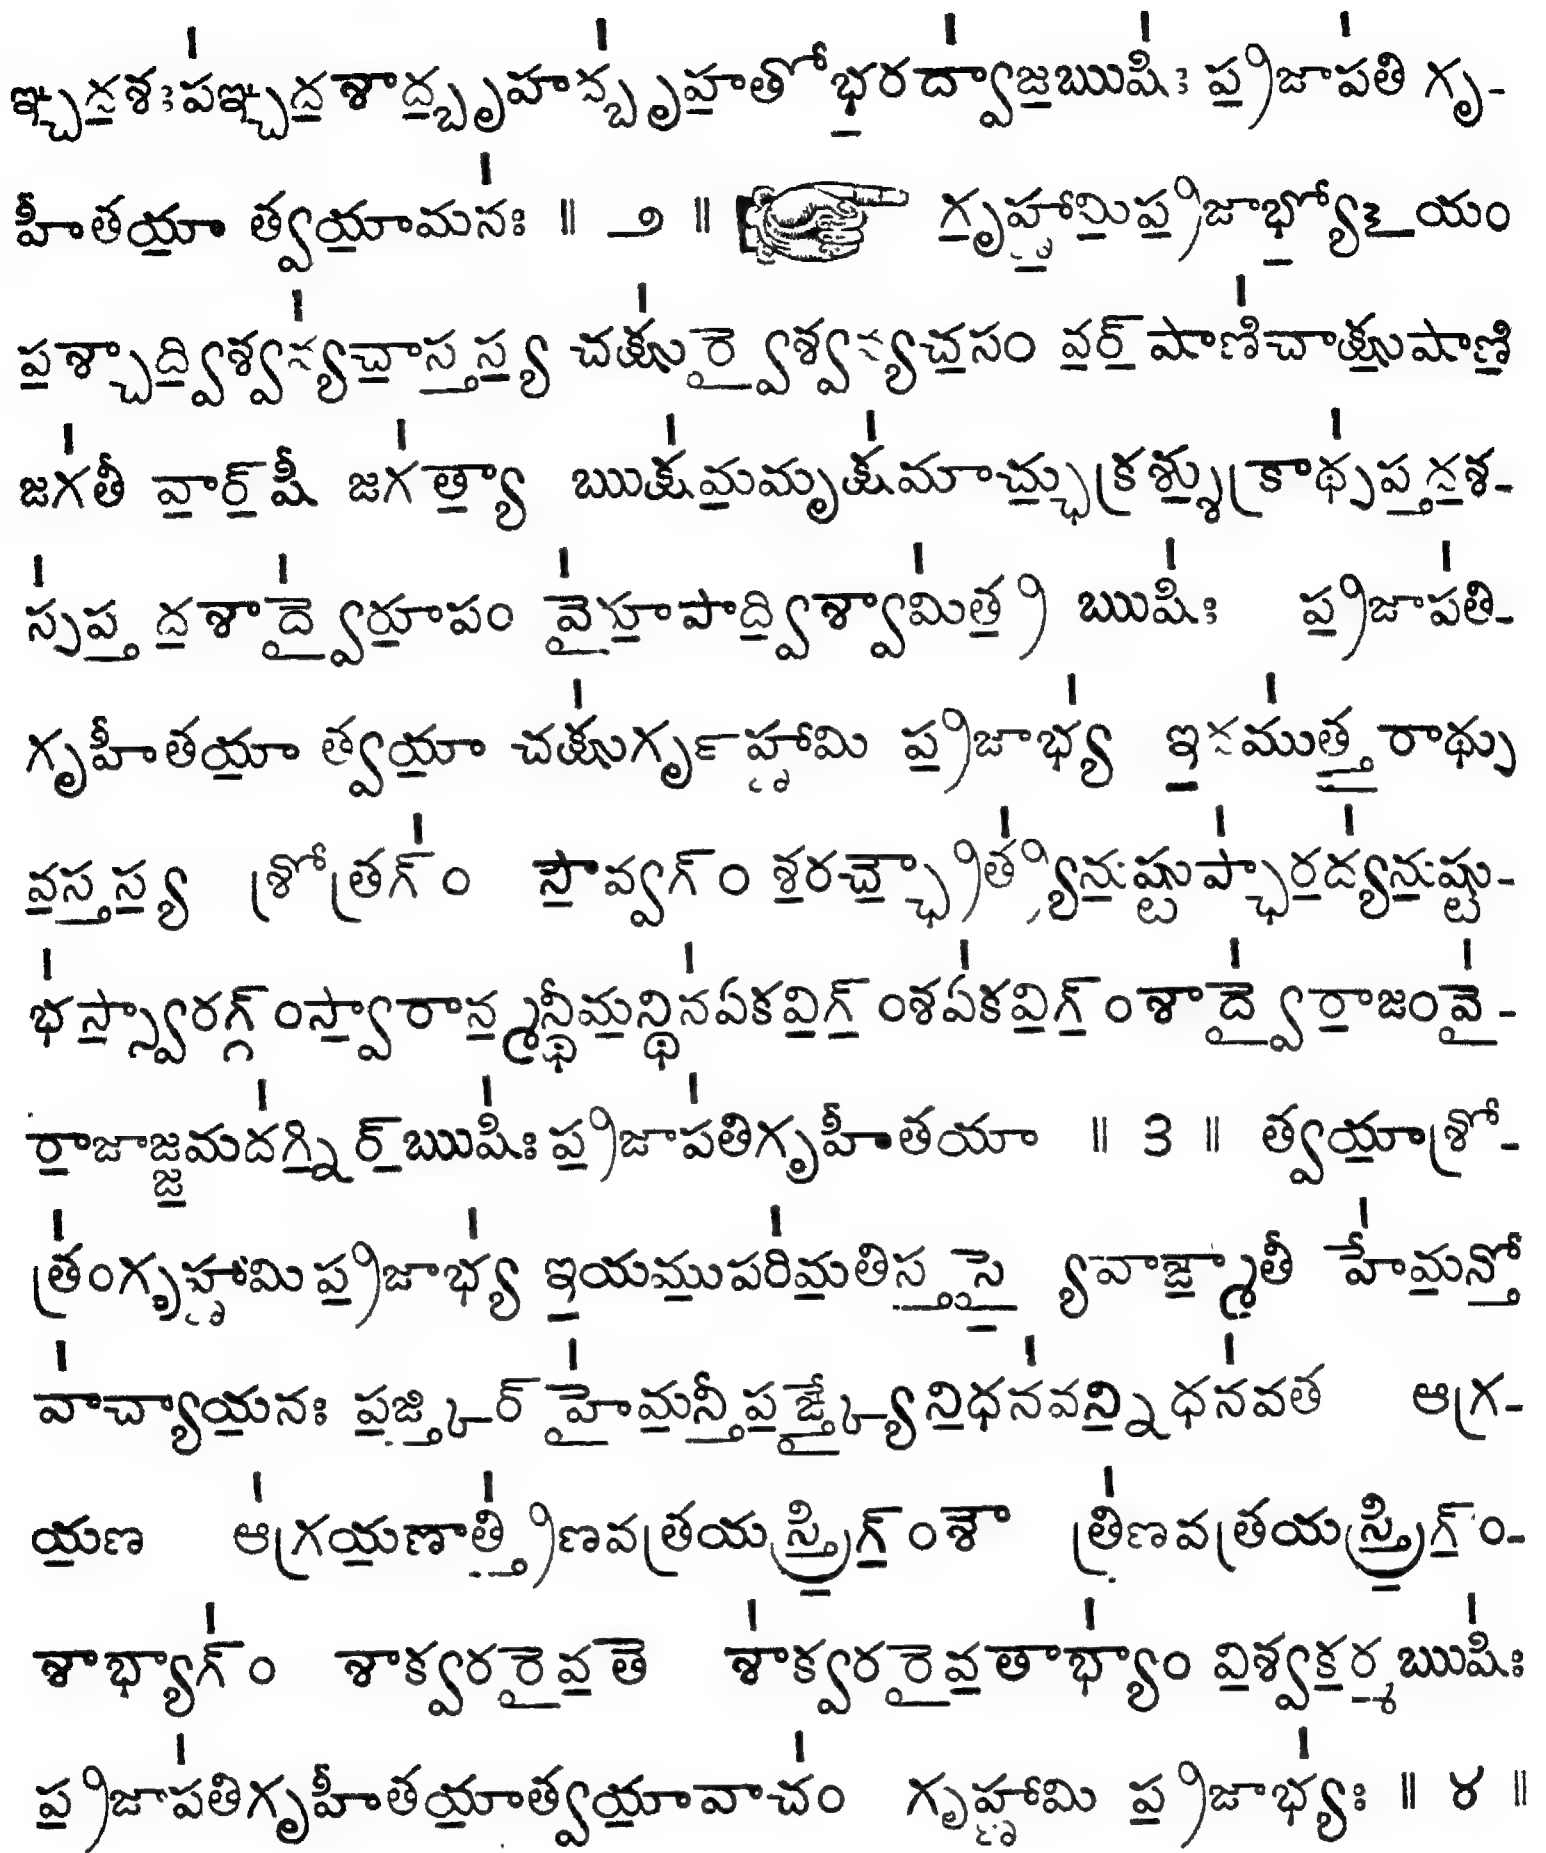 ఞ్చద॒శఃప॑ఞ్చద॒శాద్బృహద్బృ॑హ॒తోభ॒రద్వా॑జ॒ఋషిః॑ ప్ర॒జాప॑తి గృ-
హీతయా॒ త్వయా॒మనః॑ ॥ ౨ ॥ ☞ గృ॒హ్ణా॒మి॒ప్ర॒జాభ్యో॒ఽయం
ప॒శ్చాద్వి॒శ్వవ్య॑చా॒స్తస్య॒ చక్షు॑ర్వై॒శ్వవ్యచ॒సం వ॒ర్॒షాణి॑చాక్షు॒షాణి॒
జగ॑తీ వా॒ర్॒షీ జగ॑త్యా॒ ఋక్ష॑మ॒మృక్ష॑మాచ్ఛు॒క్రశ్శు॒క్రాథ్స॑ప్తద॒శ-
స్స॑ప్త ద॒శాద్వై॑రూ॒పం వై॑రూ॒పాద్వి॒శ్వామి॑త్ర॒ ఋషిః॑ ప్ర॒జాప॑తి-
గృహీతయా॒ త్వయా॒ చక్షు॑ర్గృహ్ణామి ప్ర॒జాభ్య॑ ఇ॒దము॑త్త॒రాథ్సు
వ॒స్తస్య॒ శ్రోత్రగ్॑ం సౌ॒వ్వగ్ం శ॒రచ్ఛ్రౌ॒త్ర్య॑ను॒ష్టుప్ఛా॑ర॒ద్య॑ను॒ష్టు-
భ॑స్స్వా॒రగ్గ్॒ంస్వా॒రాన్మ॒న్థీమ॒న్థిన॑ఏకవి॒గ్॒ంశఏ॑కవి॒గ్॒ంశాద్వై॑రా॒జంవై॑-
రా॒జాజ్జ॒మద॑గ్ని॒ర్॒ఋషిః॑ ప్ర॒జాప॑తిగృహీతయా ॥ ౩ ॥ త్వయా॒శ్రో-
త్రం॑గృహ్ణామిప్ర॒జాభ్య॑ ఇ॒యము॒పరి॑మ॒తిస్త॒స్యై॒ వాఙ్మా॒తీ హే॑మ॒న్తో
వా॑చ్యాయ॒నః ప॒ఙ్క్తిర్ హై॑మ॒న్తీప॒ఙ్క్త్యై॒ని॒ధన॑వన్ని॒ధన॑వత ఆగ్ర-
య॒ణ ఆ॑గ్రయ॒ణాత్త్రి॑ణవత్రయస్త్రి॒గ్॒ంశౌ త్రి॑ణవత్రయస్త్రి॒గ్॒ం-
శాభ్యాగ్॑ం శాక్వరరై॒వ॒తె శా॑క్వరరై॒వ॒తాభ్యాం॑ వి॒శ్వక॒ర్మ॒ఋషిః॑
ప్ర॒జాప॑తిగృహీతయా॒త్వయా॒వాచం॑ గృహ్ణామి ప్ర॒జాభ్యః॑ ॥ ౪ ॥